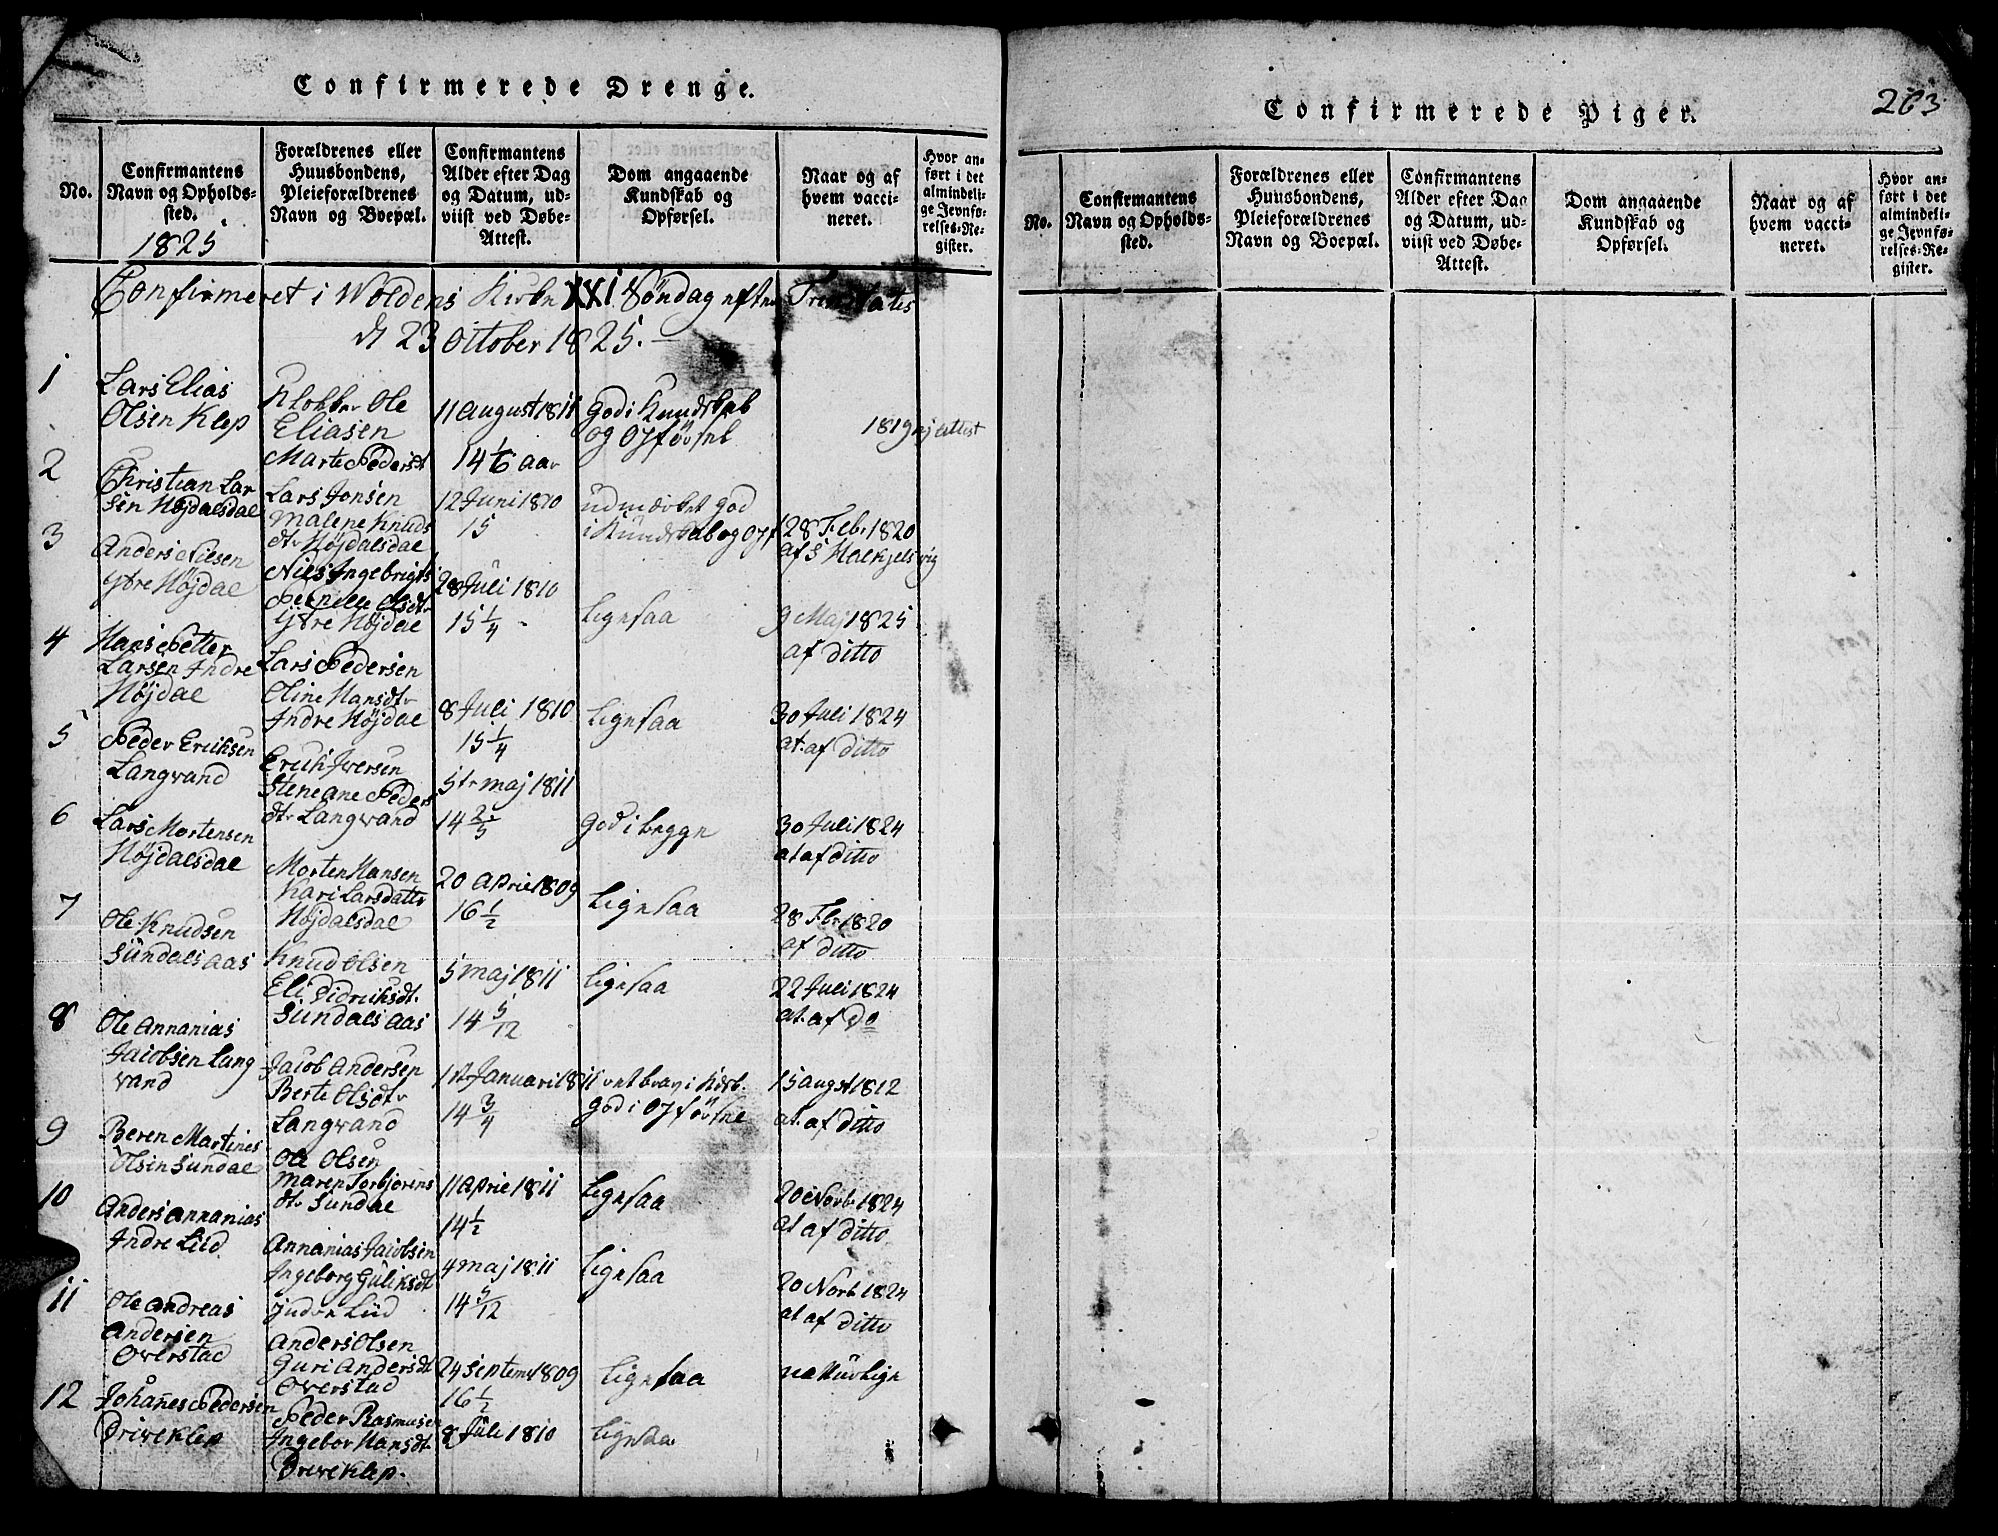 Confirmerede Drenge.
No.
Confirmantens
Navn og Opholds-
sted.
1825
Forældrenes eller
Huusbondens,
Pleieforældrenes
Navn og Boepæl.
Confirmantens
Alder efter Dag
og Datum, ud-
viist ved Døbe-
Attest.
Dom angaaende
Kundskab og
Opførsel.
Naar og af
hvem vacci-
neret.
Hvor an-
ført i det
almindeli-
ge Jevnfø-
relses-Re-
gister.
Confirmeret i Woldens Kirke XXI Søndag efter Trinitatis
d 23 October 1825.
1
Lars Elias
Olsen Klep
Klokker Ole
Eliasen
Marte Pedersdt
11 August 1811
14 1/6 aar
God i Kundskab
og Opførsel
1819 ej attest
2
Christian Lar
sen Højdalsdal
Lars Jonsen
Malene Knuds
dtr Højdalsdal
12 Juni 1810
15
udmærket god
i Kundskab og Opf
28 Febr 1820
af S Maekjelsvig
3
Anders Nilsen
Ytre Højdal
Niels Ingebrigts
Pernille Olsdtr
Ytre Højdal
28 Juli 1810
15 1/4
Ligesaa
9 Maj 1825
af ditto
4
Hans Petter
Larsen Indre
Højdal
Lars Pedersen
Oline Hansdtr
Indre Højdal
8 Juli 1810
15 1/4
Ligesaa
30 Juli 1824
at. af ditto
5
Peder Eriksen
Langvand
Erich Iversen
Steneane Peders
dtr Langvand
5te maj 1811
14 2/5
God i begge
30 Juli 1824
at af ditto
6
Lars Mortensen
Højdalsdal
Morten Hansen
Kari Larsdattr
Højdalsdal
20 April 1809
16 1/2
Ligesaa
28 Febr 1820
af ditto
7
Ole Knudsen
Sundals aas
Knud Olsen
Eli Didriksdt.
Sundals aas
5 maj 1811
14 5/12
Ligesaa
22 Juli 1824
at. af Do
8
Ole Annanias
Jacobsen Lang
vand
Jacob Andersen
Berte Olsdtr
Langvand
1st Januari 1811
14 3/4
ret brav i Kdsb.
God i Opførsel
15 augst 1812
at. af ditto
9
Beren Martines
Olsen Sundal
Ole Olsen
Maren Torbjørens
dtr Sundal
11 April 1811
14 1/2
Ligesaa
20 Novbr 1824
at af ditto
10
Anders Annanias
Indre Liid
Annanias Jacobsen
Ingeborg Guliksdt
Indre Liid
4 maj 1811
14 5/12
Ligesaa
20 Novb 1824
at af ditto
11
Ole Andreas
Andersen
Overstad
Anders Olsen
Guri Andersdt
Overstad
24 Septemb 1809
16 1/2
Ligesaa
naturlige
12
Johannes Pedersen
Driveklep
Peder Rasmusen
Ingebor Hansdt.
Driveklep.
8 Juli 1810
Ligesaa
Confirmerede Piger.
263
No.
Confirmantens
Navn og Opholds-
sted.
Forældrenes eller
Huusbondens,
Pleieforældrenes
Navn og Boepæl.
Confirmantens
Alder efter Dag
og Datum, ud-
viist ved Døbe-
Attest.
Dom angaaende
Kundskab og
Opførsel.
Naar og af
hvem vacci-
neret.
Hvor an-
ført i det
almindeli-
ge Jevnfø-
relses-Re-
gister.